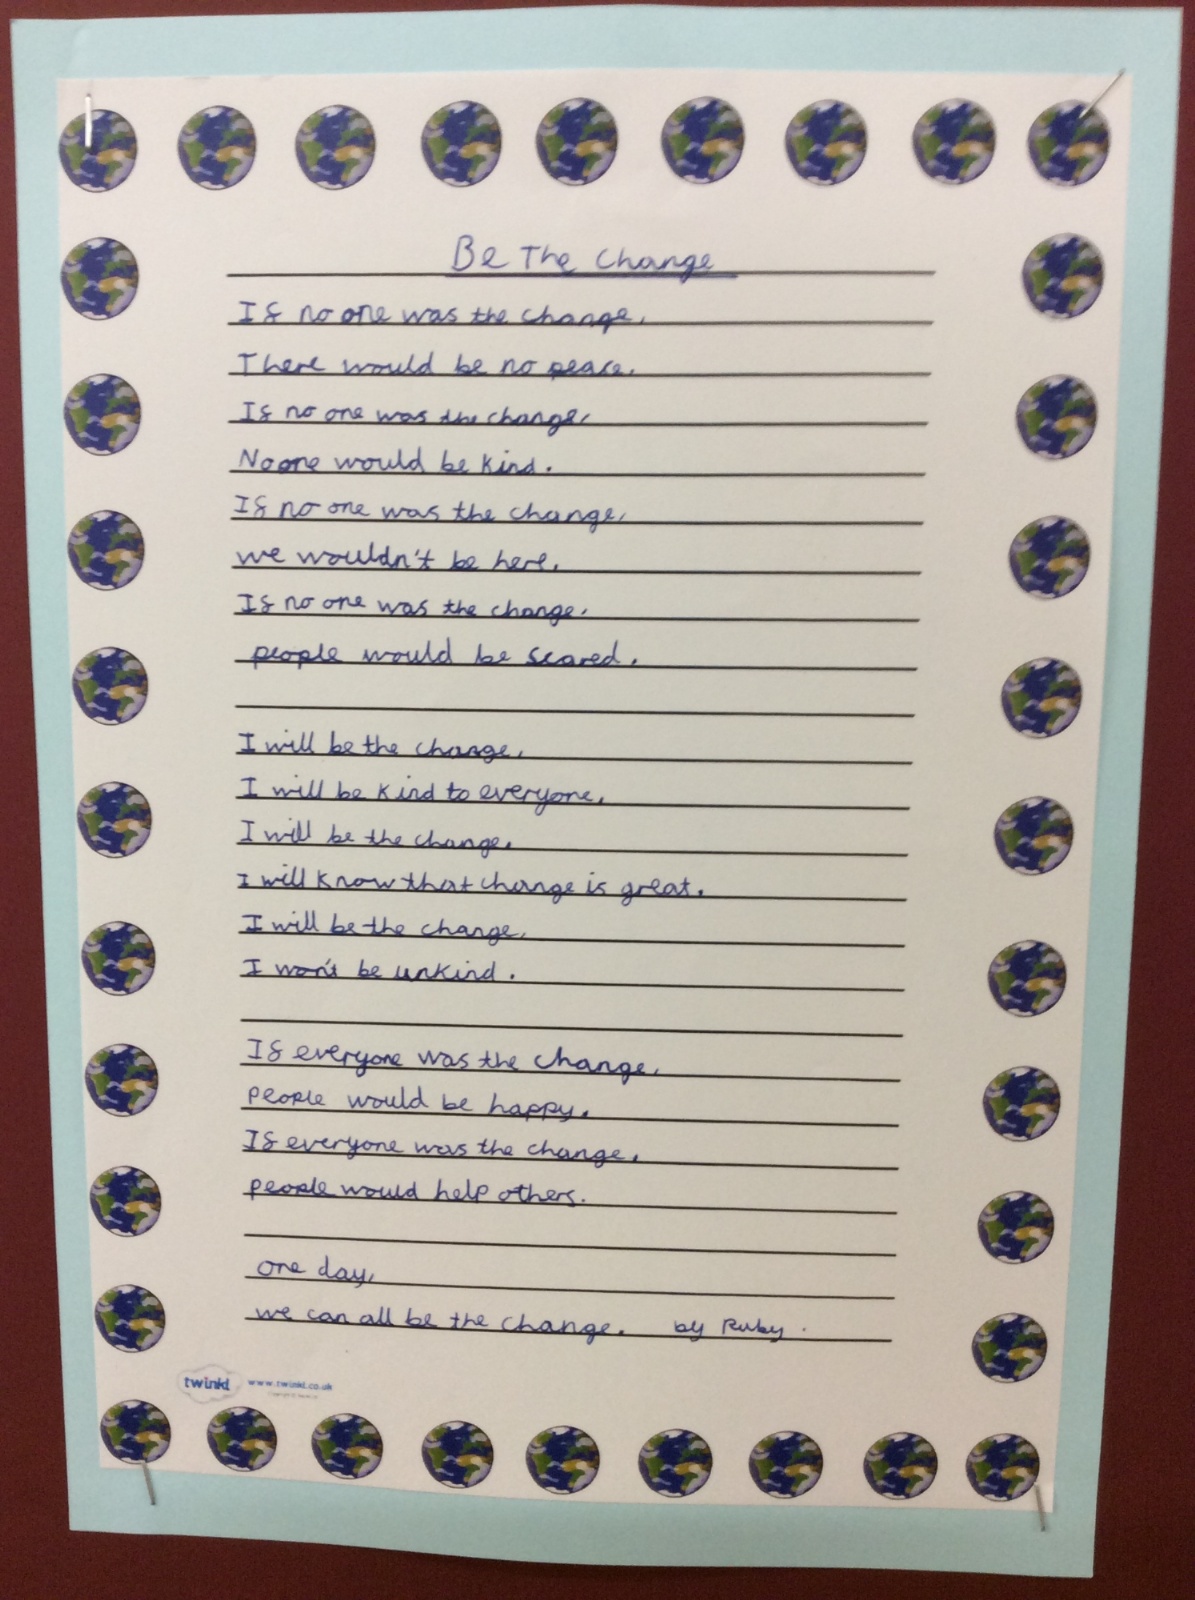 Be The Change
If no one was the change,
There would be no peace.
If no one was the change,
No one would be kind.
If no one was the change,
we wouldn't be here.
If no one was the change,
people would be scared.
I will be the change,
I will be kind to everyone.
I will be the change.
I will know that change is great.
I will be the change,
I won't be unkind.
If everyone was the change,
people would be happy.
If everyone was the change,
people would help others.
one day,
we can all be the change. by Ruby.
twinkl www.twinkl.co.uk